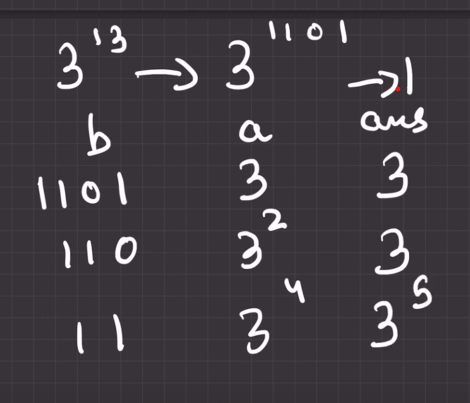 3^13 → 3^1101 → 1
b a ans
1101 3 3
110 3^2 3
11 3^4 3^5